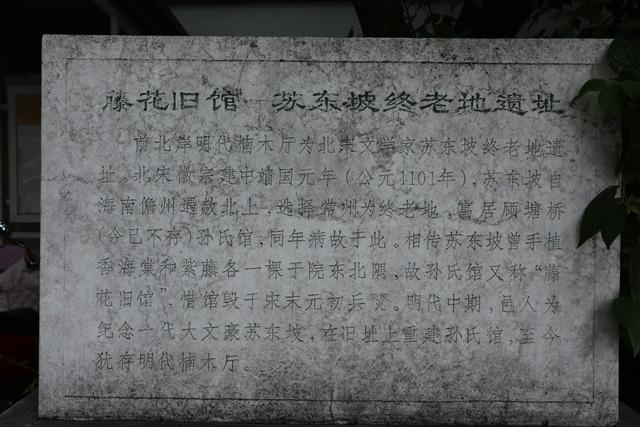 藤花旧馆——苏东坡终老地遗址
前北岸明代楠木厅为北宋文学家苏东坡终老地遗
址。北宋徽宗建中靖国元年(公元1101年),苏东坡自
海南儋州遇赦北上,选择常州为终老地,寓居顾塘桥
(今已不存)孙氏馆;同年病故于此。相传苏东坡曾手植
香海棠和紫藤各一棵于院东北隅,故孙氏馆又称“藤
花旧馆”,惜馆毁于宋末元初兵燹。明代中期,邑人为
纪念一代大文豪苏东坡,在旧址上重建孙氏馆,至今
犹存明代楠木厅。